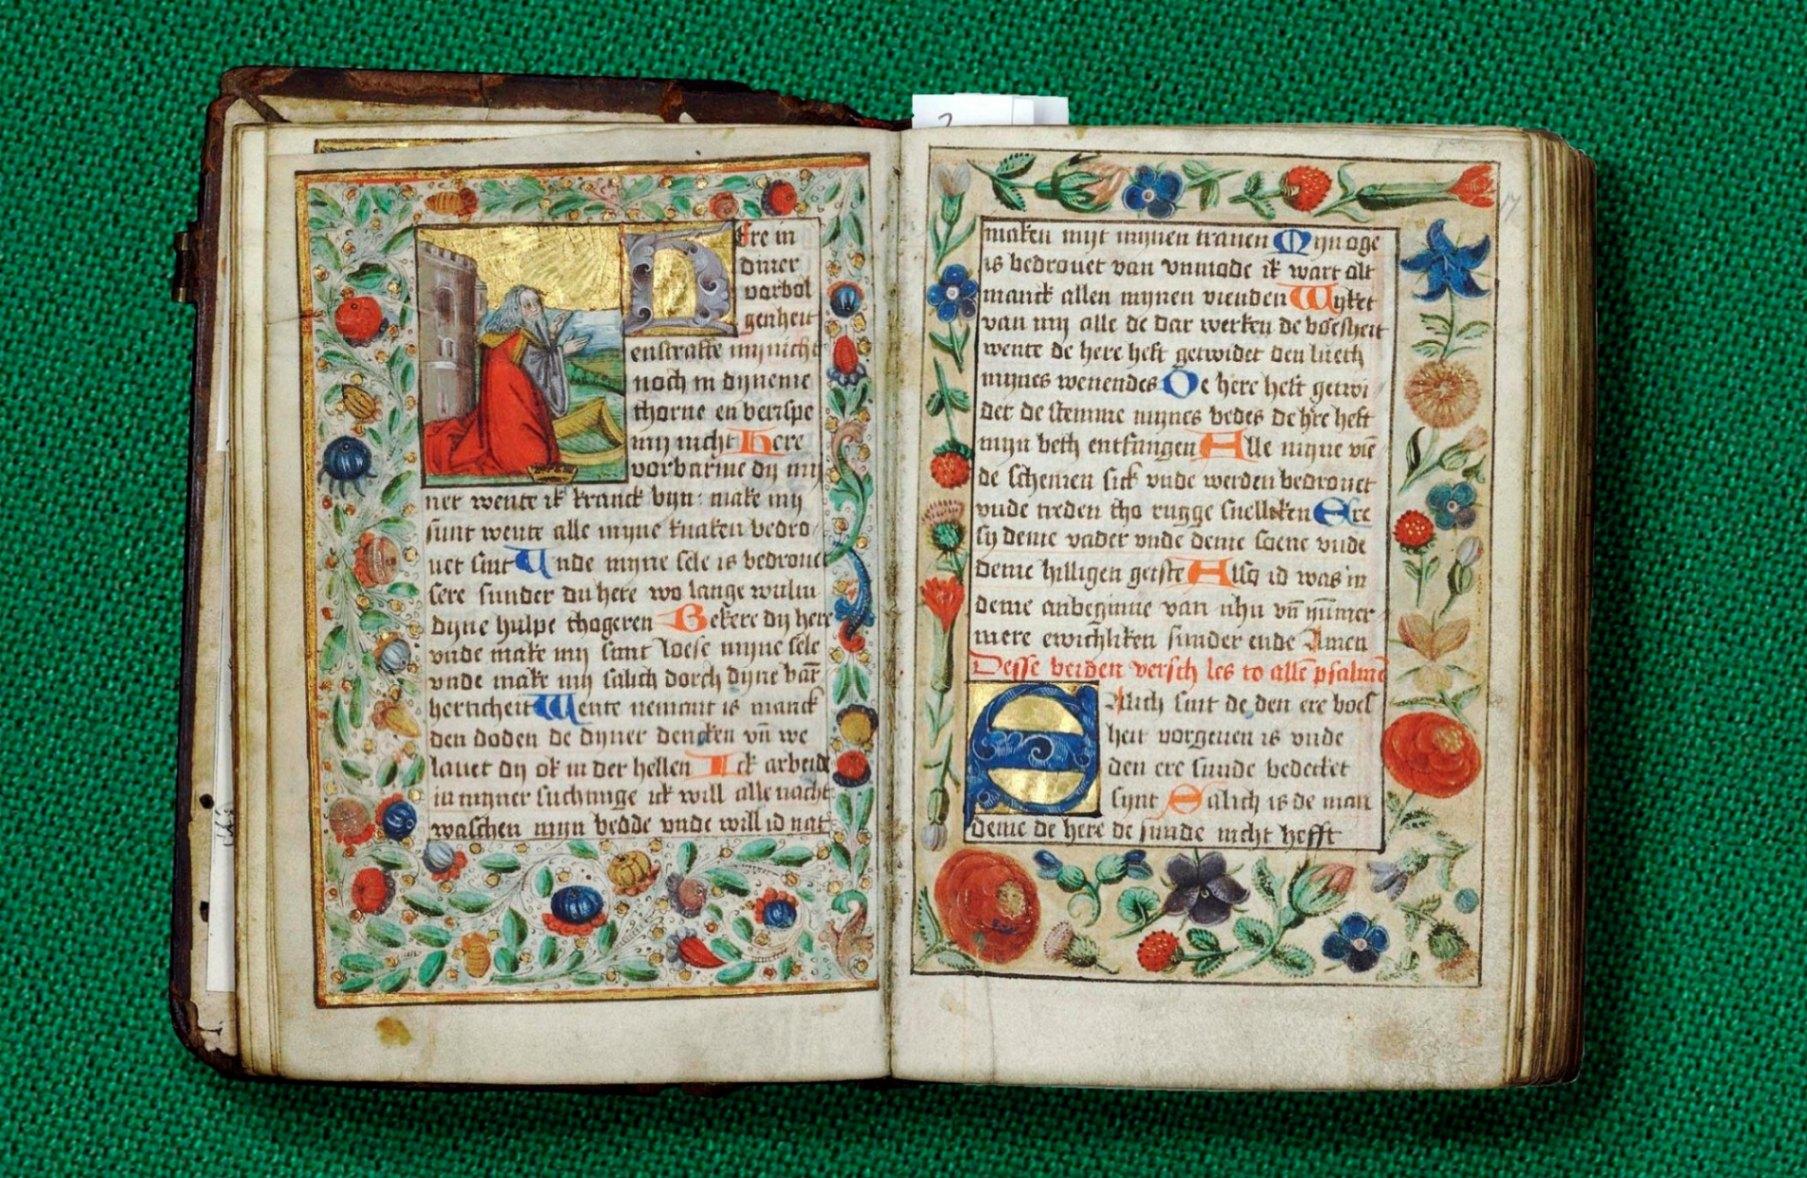 Here in
diner
vorbol
genheit
enstraffe mi nicht
noch in dyneme
thorne en berispe
mij nicht Here
vorbarme dij mij
ner wente ik kranck byn: make mij
sunt wente alle myne knaken bedro
uet sint Unde myne sele is bedrouet
sere sunder du here wo lange wultu
dyne hulpe thogeren Bekere dij here
vnde make mij sunt loese myne sele
vnde make mij salich dorch dyne bar̄
herticheit Wente nemant is manck
den doden de dyner dencken vn̄ we
lauet dij ok in der hellen Ick arbeide
in myner suchtinge ick will alle nacht
waschen myn bedde vnde will id nat
maken myt mynen tranen Myn oge
is bedrouet van vnmode ik wart olt
manck allen mynen vienden Wyket
van mij alle de dar werken de boesheit
wente de here heft getwidet den lueth
mynes wenendes De here heft getwi
det de stemme mynes bedes de hre heft
myn beth entfangen Alle myne viē
de schemen sick vnde werden bedrouet
vnde treden tho rugge snelleken Ere
sy deme vader vnde deme soene vnde
deme hilligen geiste Also id was in
deme anbeginne van nhu vn̄ ȳmmer
mere ewichliken sunder ende Amen
Desse beiden versch les to allē psalmē
Alich sint de den ere boes
heit vorgeuen is vnde
den ere sunde bedecket
synt Salich is de man
deme de here de sunde nicht hefft
17
2